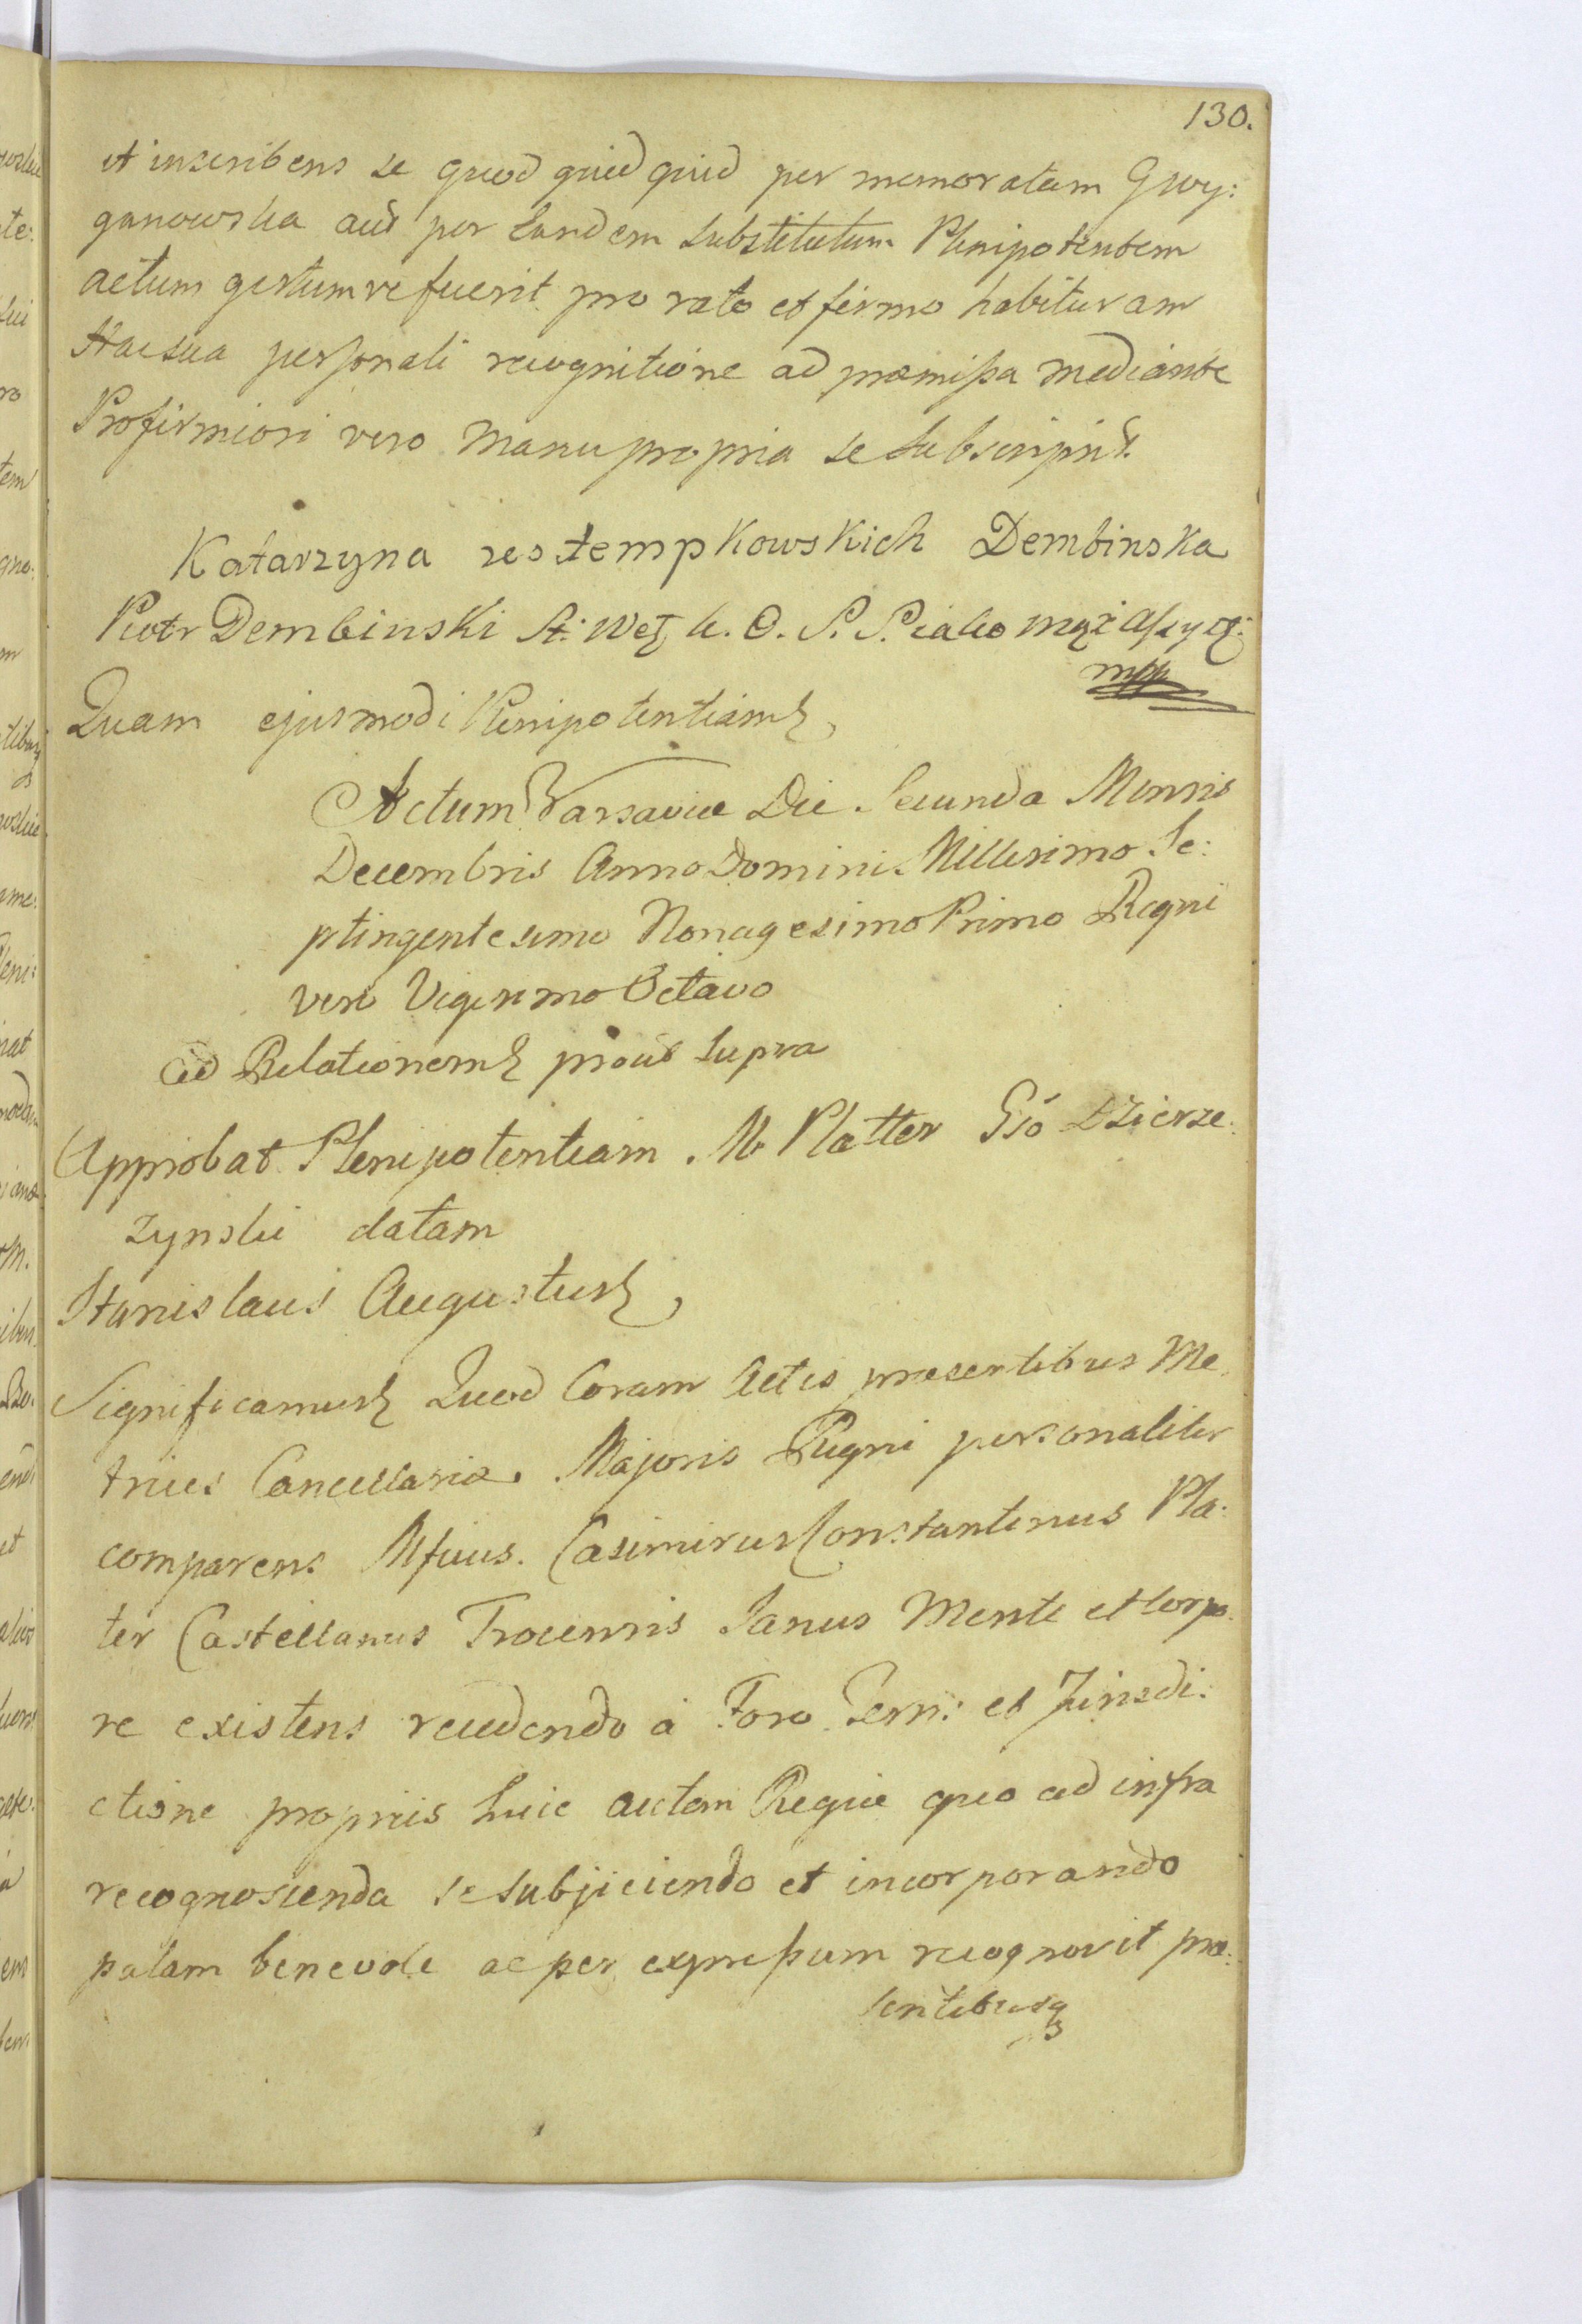 130.
et inscribens se quod quid quid per memoratam Gwy:
ganowska aut per eandem substitutum Plenipotentem
actum gestumve fuerit pro rato et firmo habituram
Hac sua personali recognitione ad præmissa mediante
Pro firmiori vero manu propria se subscripsit.
Katarzyna zestempkowskich Dembinska
Piotr Dembinski St: Wol: k. O. S. S. iako mąż Assyst:
mpp
Quam ejusmodi Plenipotentiam
Actum Varsaviæ Die Secunda Mensis
Decembris Anno Domini Millesimo Se:
ptingentesimo Nonagesimo Primo Regni
vero Vigesimo Octavo
ad Relationem prout supra
Approbat Plenipotentiam M Platter Gso Dzierze:
zynski datam
Stanislaus Augustus
Significamus Quod Coram Actis præsentibus Me
trices Cancellariæ Majoris Regni personaliter
comparens Mfcus. Casimirus Constantinus Pla:
ter Castellanus Trocensis Sanus Mente et Corpo
re existens recedendo à Foro Terri: et Jurisdi:
ctione propriis huic autem Regiæ quo ad infra
recognoscenda se subjiciendo et incorporando
palam benevole ac per expressum recognovit præ:
sentibusq